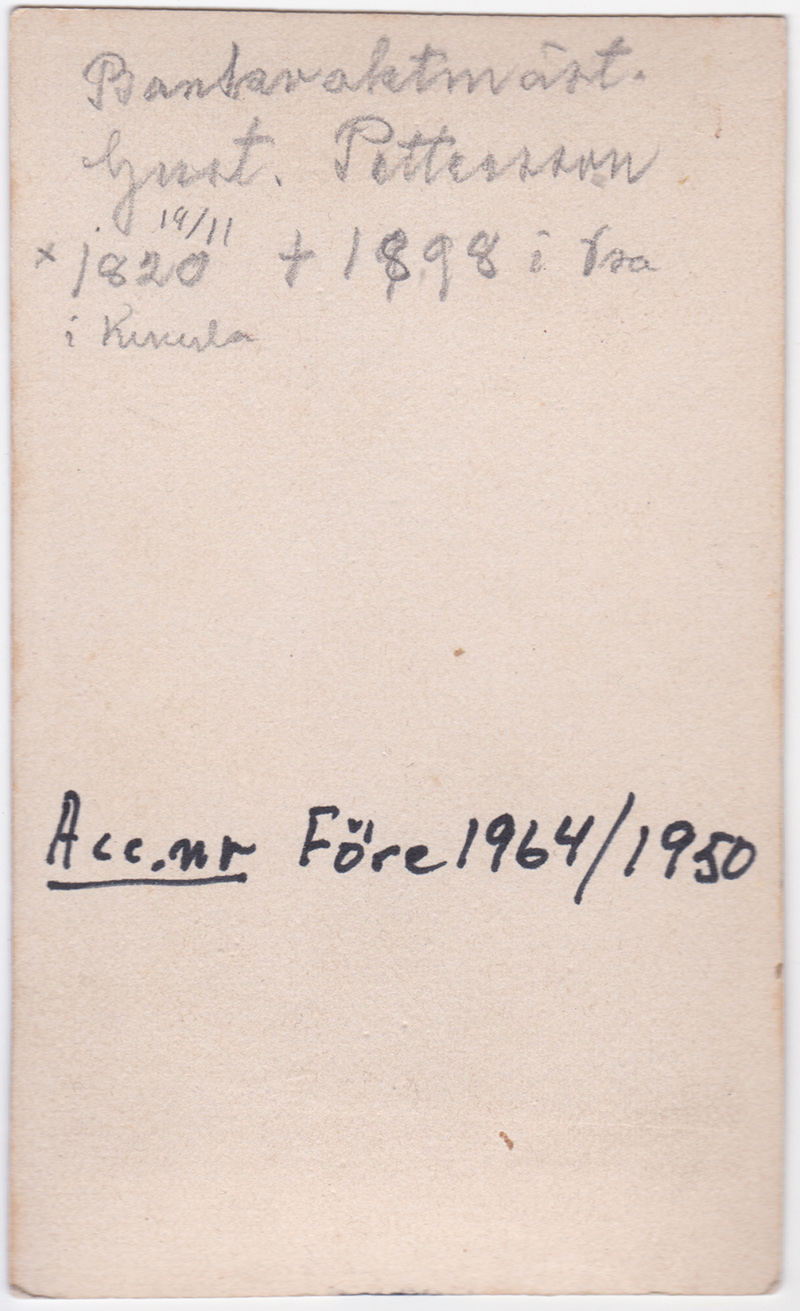 Bankvaktmäst.
Gust. Pettersson
19/11
× 1820 + 1898 i Vxa
i
Acc.nr Före 1964/1950